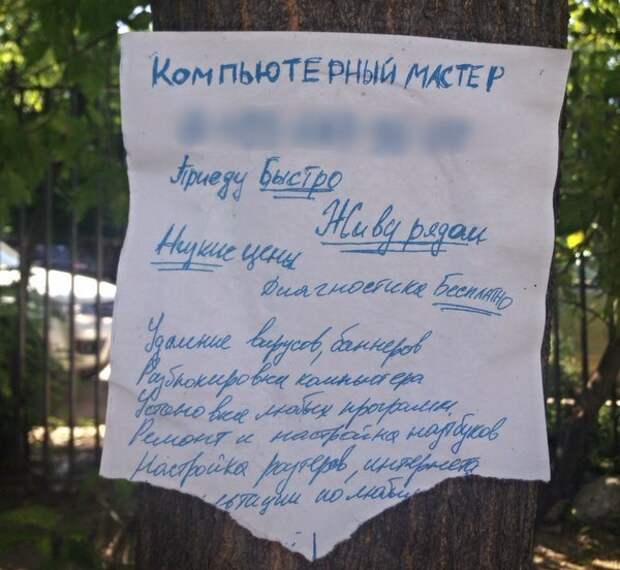 КОМПЬЮТЕРНЫЙ МАСТЕР
Приеду Быстро
Живу рядом
Низкие цены
Диагностика Бесплатно
Удаление вирусов, баннеров
Разблокировка компьютера
Установка любых программ,
Ремонт и настройка ноутбуков
Настройка роутеров, интернета